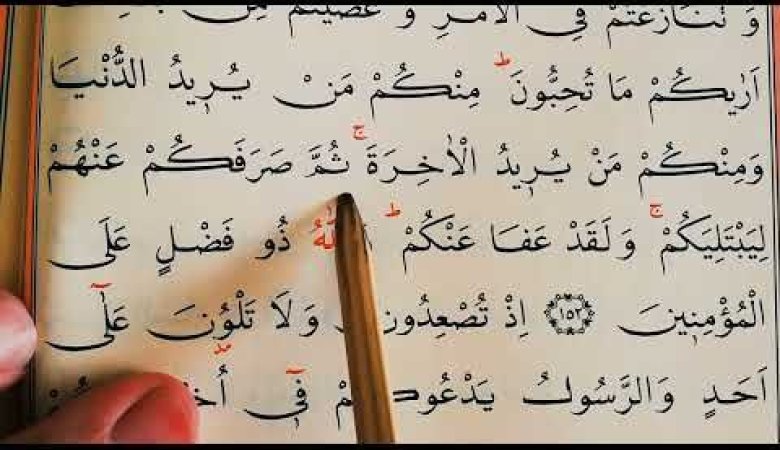 وَتَنَازَعْتُمْ فِي الْاَمْرِ وَعَصَيْتُمْ مِنْ
اَرٰيكُمْ مَا تُحِبُّونَۜ ط مِنْكُمْ مَنْ يُرِيدُ الدُّنْيَا
وَمِنْكُمْ مَنْ يُرِيدُ الْاٰخِرَةَ ج ثُمَّ صَرَفَكُمْ عَنْهُمْ
لِيَبْتَلِيَكُمْ ج وَلَقَدْ عَفَا عَنْكُمْ ط ذُو فَضْلٍ عَلَى
الْمُؤْمِنِينَ ١٥٢ اِذْ تُصْعِدُونَ وَلَا تَلْوُنَ عَلٰٓى
اَحَدٍ وَالرَّسُولُ فِٓي